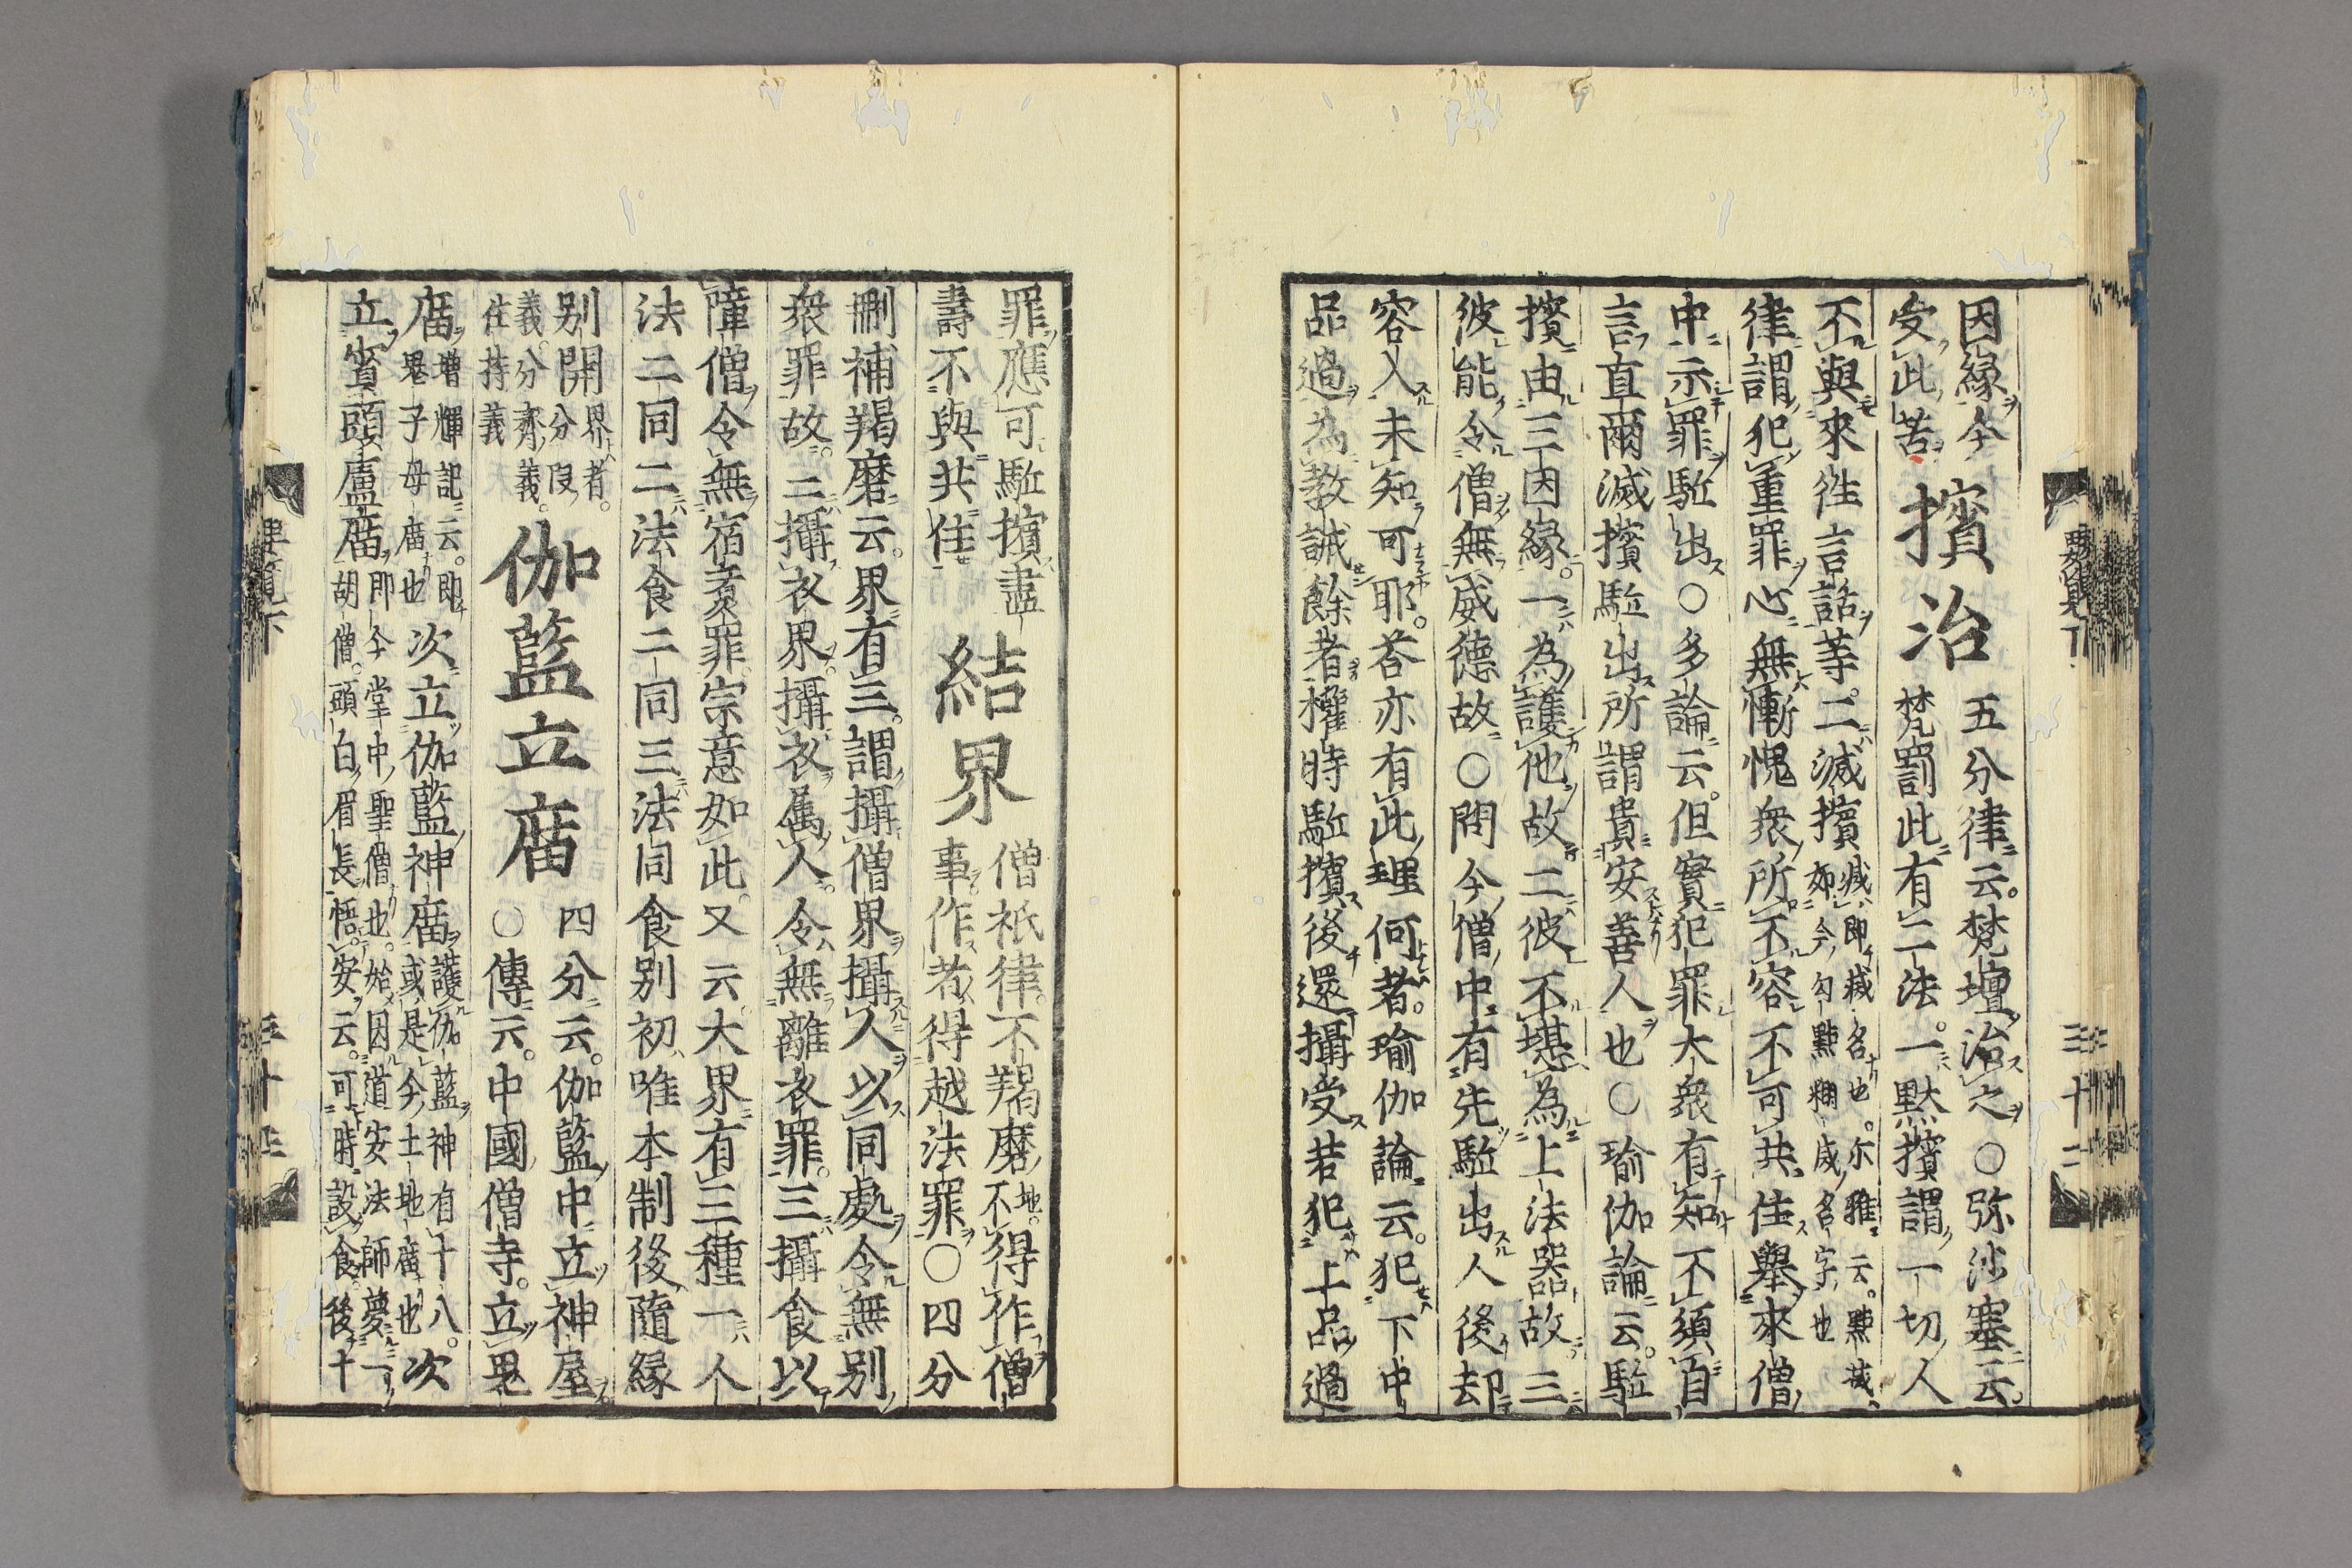 因緣今受此苦
擯治
五分律云梵壇治之○弥沙塞云
梵罰此有二法一黙擯謂一切人
不與來徃言話等二滅擯
滅即滅名也尔雅云點滅
如今勾點糊處名字也
律謂犯重罪心無慚愧衆所不容不可共住舉來僧
中示罪駈出○多論云但實犯罪大衆有知不須自
言直爾滅擯駈出所謂貴安善人也○瑜伽論云駈
擯由三因緣一為護他故二彼不堪為上法器故三
彼能令僧無威德故○問今僧中有先駈出人後却
容入未知可耶荅亦有此理何者瑜伽論云犯下中
品過為教誡餘者權時駈擯後還攝受若犯上品過
要覽下
三十二
罪應可駈擯盡
壽不與共住
結界
僧祇律不羯磨地不得作僧
事作者得越法罪○四分
刪補羯磨云界有三謂攝僧界攝人以同處令無別
衆罪故二攝衣界攝衣属人令無離衣罪三攝食以
障僧令無宿煮罪宗意如此又云大界有三種一人
法二同二法食二同三法同食別初唯本制後隨緣
別開
界者分叚義分齊義住持義
伽藍立庿
四分云伽藍中立神屋
○傳云中國僧寺立鬼
庿
增輝記云即鬼子母庿也
次立伽藍神庿
護伽藍神有十八
或是今土地庿也
次
立賓頭盧庿
即今堂中聖僧也始因道安法師夢一
胡僧頭白眉長悟安云可時設食後十
要覽下
三十三